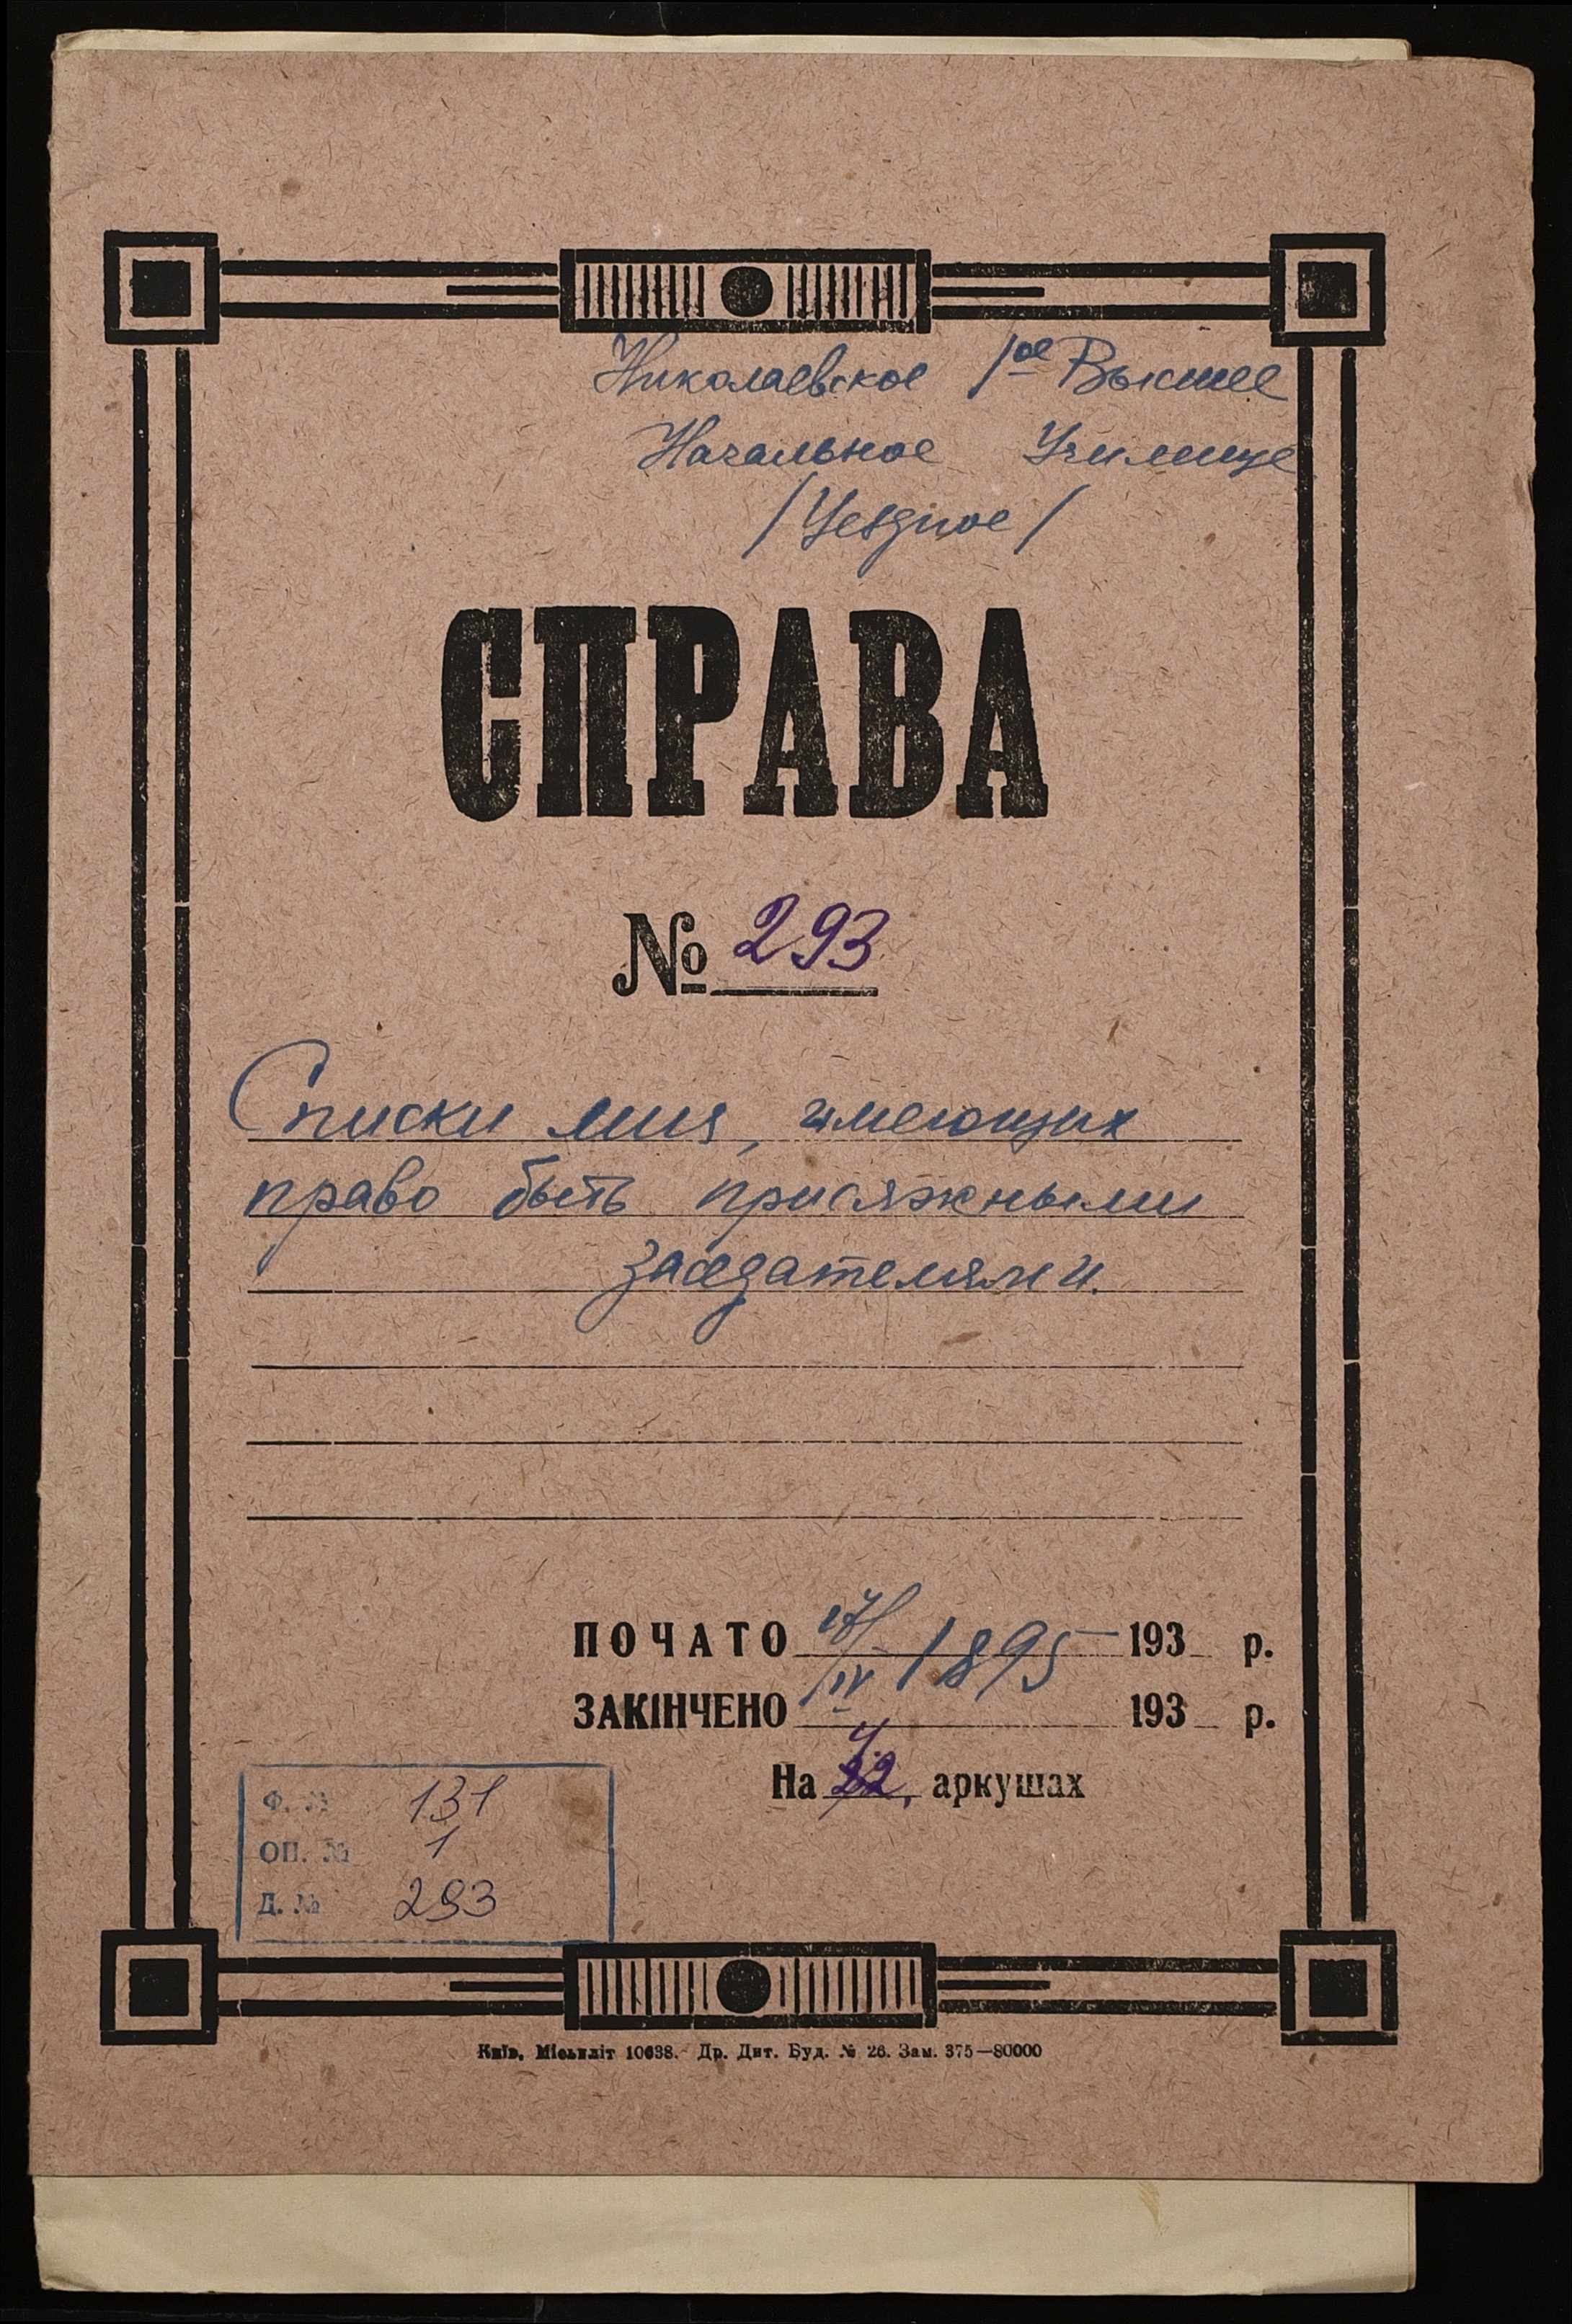 Николаевское 1ое Высшее
Начальное Училище
/Уездное/
СПРАВА
№ 293
Списки лиц, имеющих
право быть присяжными
заседателями.
ПОЧАТО 17/IV 1895 193 р.
ЗАКІНЧЕНО 193 р.
4.
На 22, аркушах
Ф. № 131
ОП. № 1
Д. № 293
Київ, Міськліт 10638. Др. Дит. Буд. № 26. Зам. 375—80000